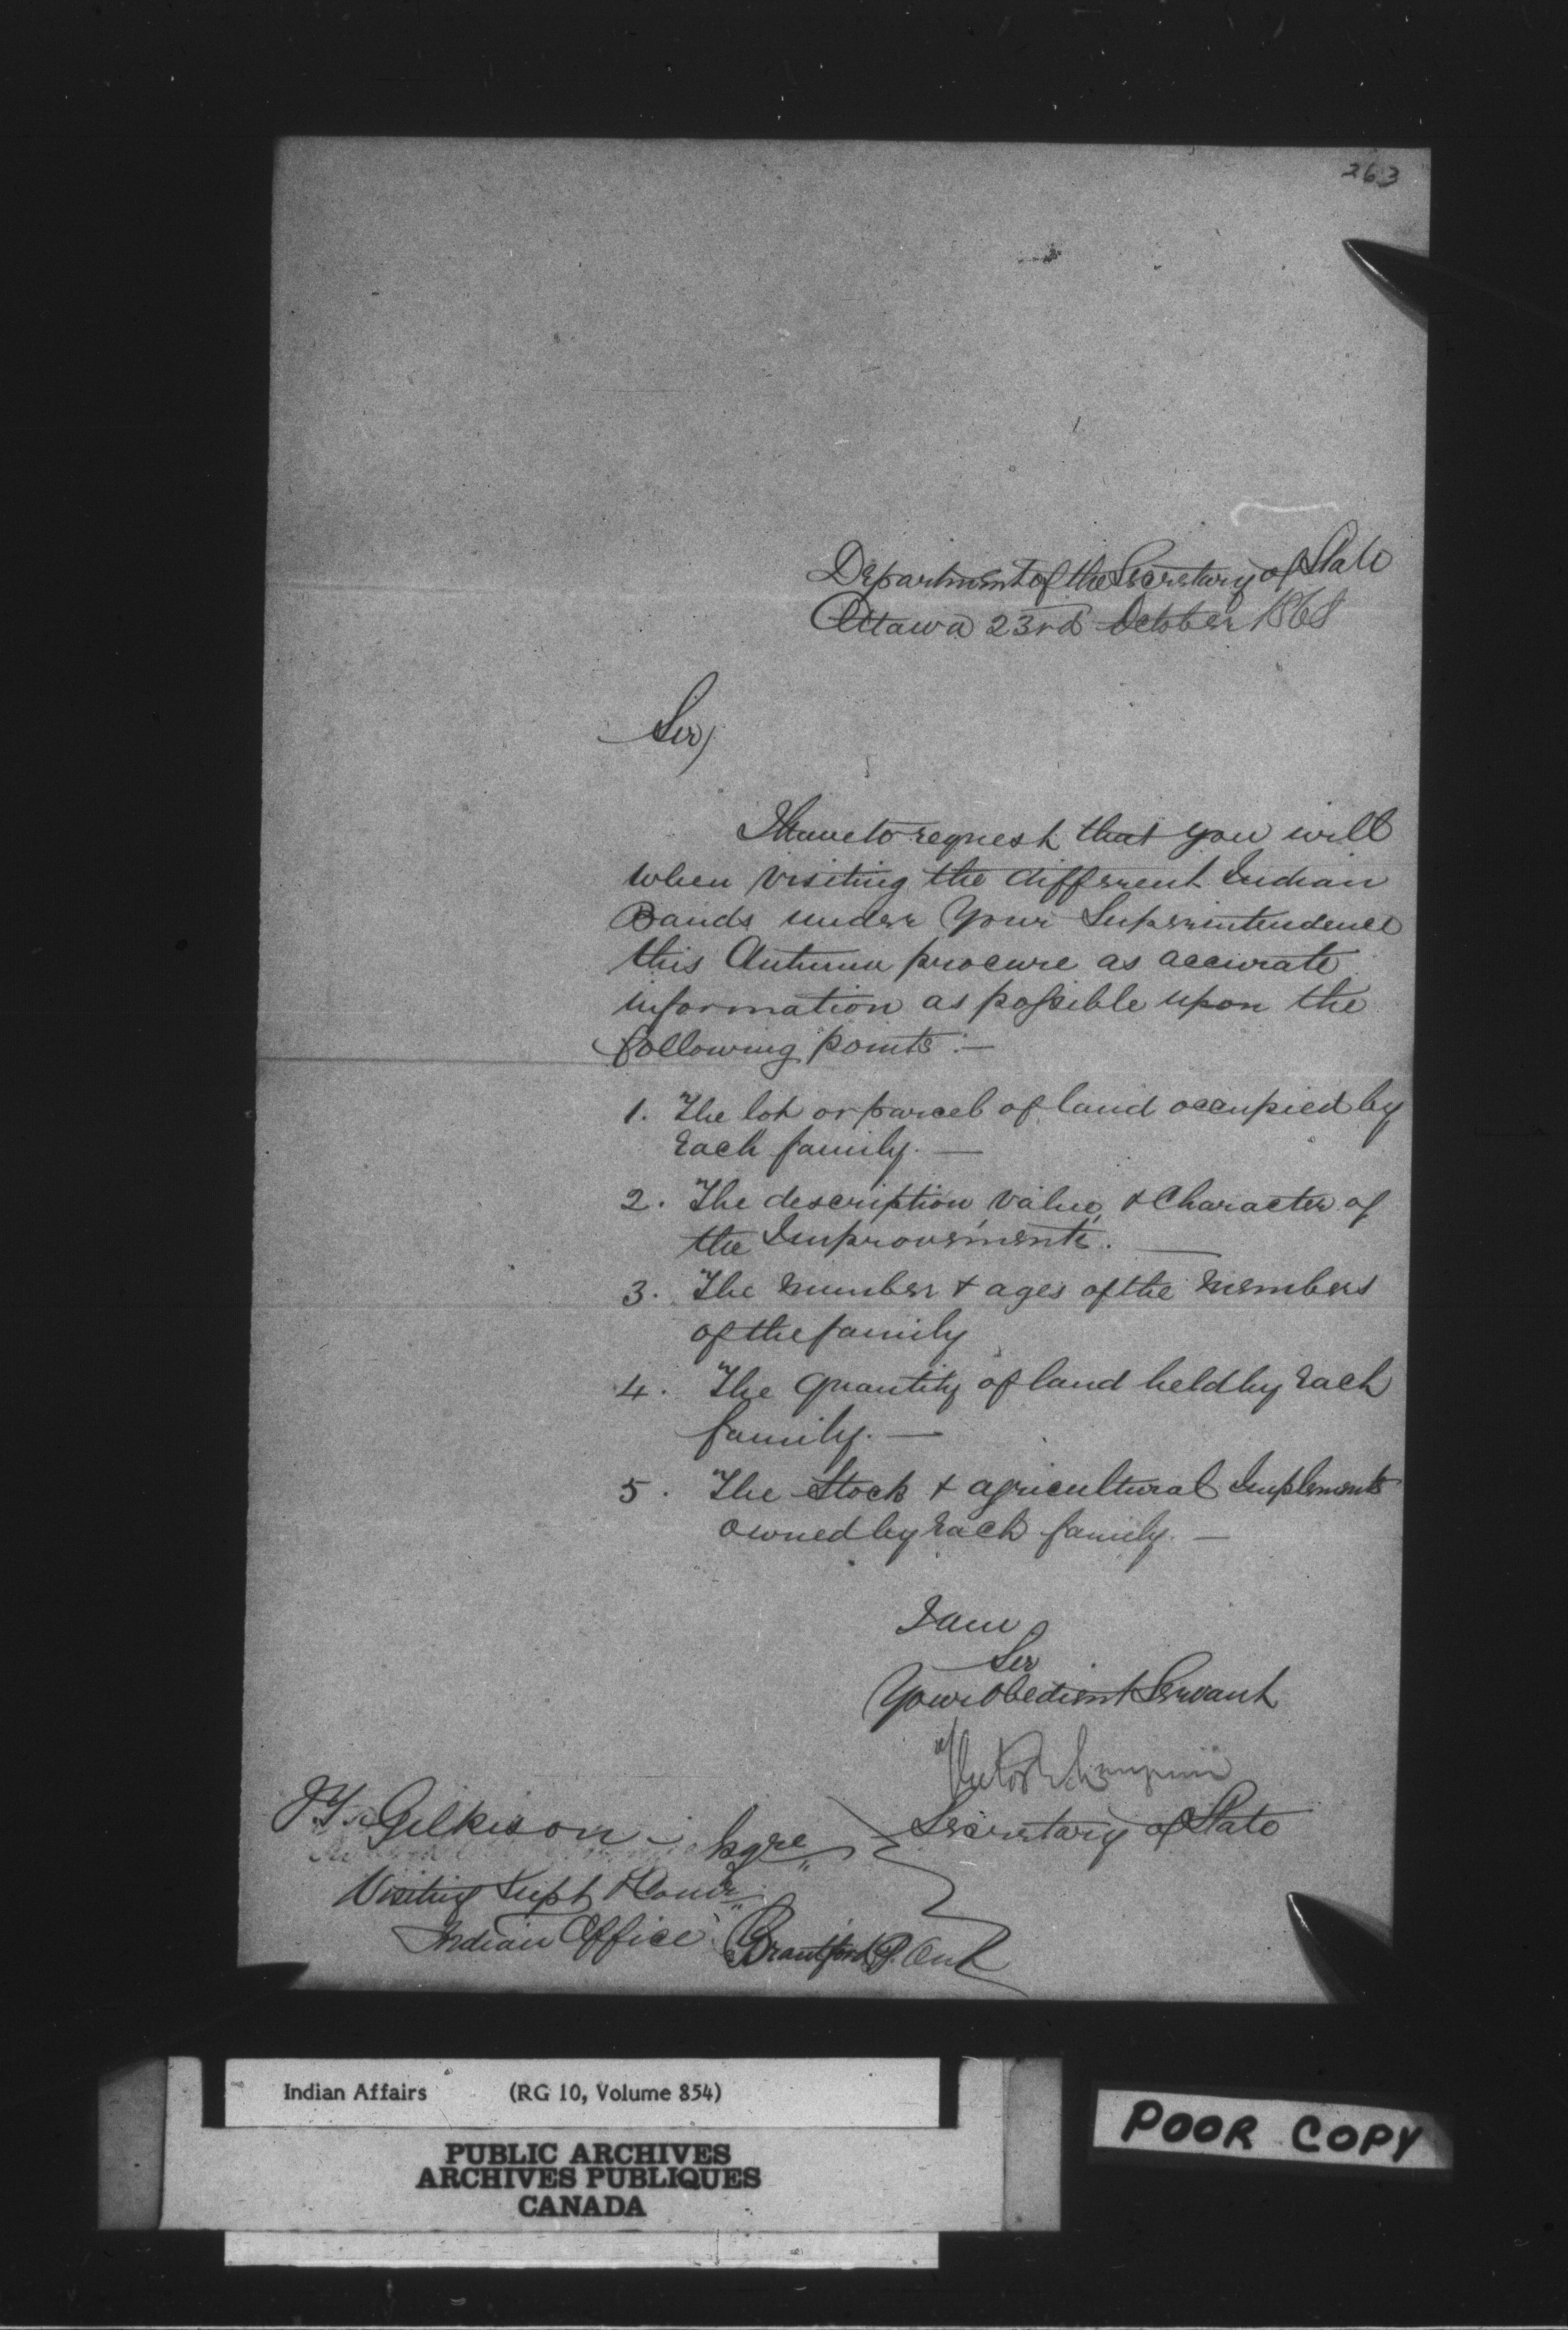 263
Department of the Secretary of State
Ottawa 23rd October 1868
Sir,
I have to request that you will
when visiting the different Indian
Bands under Your Superintendence
this Autumn procure as accurate
information as possible upon the
following points :—
1. The lot or parcel of land occupied by
Each family. —
2. The description, value, & Character of
the Improvements. —
3. The number & ages of the members
of the family
4. The Quantity of land held by Each
family. —
5. The Stock & agricultural Implements
owned by Each family. —
I am
Sir
Your Obedient Servant
Secretary of State
J.T. Gilkison Esqre
Visiting Supt & Comr
Indian Office Brantford P. Ont
Indian Affairs (RG 10, Volume 854)
PUBLIC ARCHIVES
ARCHIVES PUBLIQUES
CANADA
POOR COPY